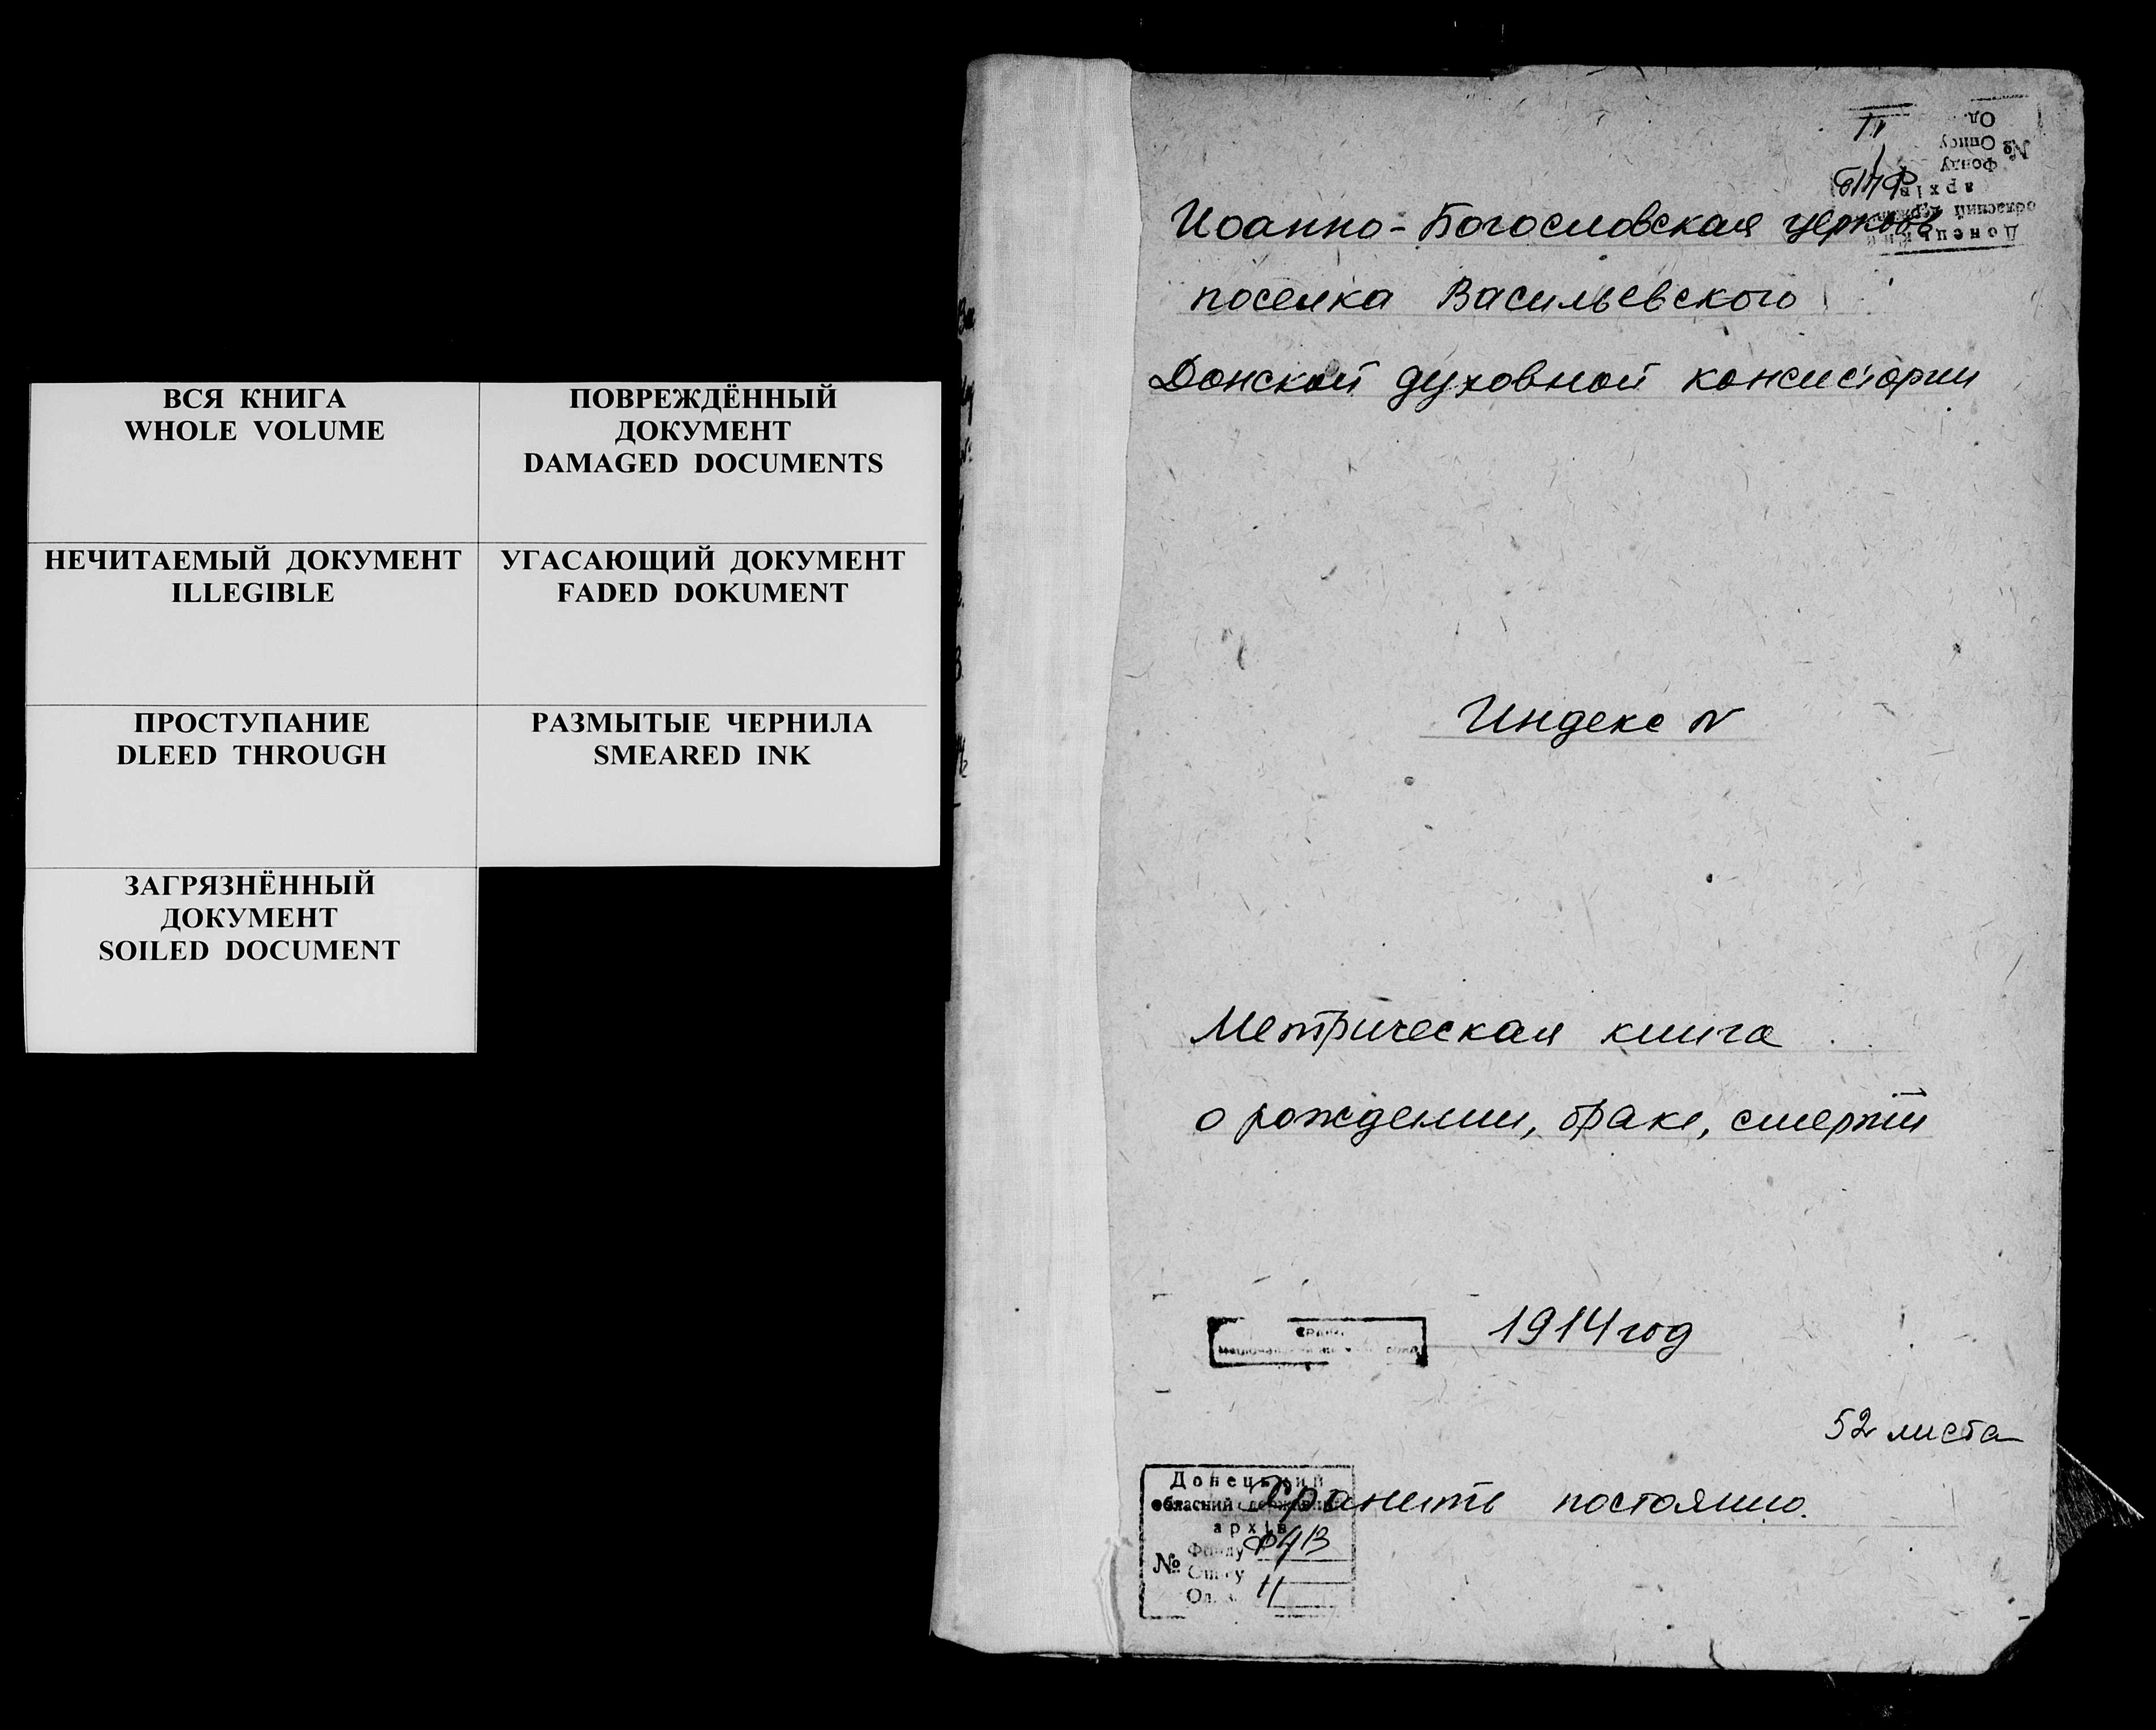 ВСЯ КНИГА
WHOLE VOLUME
ПОВРЕЖДЁННЫЙ
ДОКУМЕНТ
DAMAGED DOCUMENTS
НЕЧИТАЕМЫЙ ДОКУМЕНТ
ILLEGIBLE
УГАСАЮЩИЙ ДОКУМЕНТ
FADED DOKUMENT
ПРОСТУПАНИЕ
DLEED THROUGH
РАЗМЫТЫЕ ЧЕРНИЛА
SMEARED INK
ЗАГРЯЗНЁННЫЙ
ДОКУМЕНТ
SOILED DOCUMENT
Иоанно-Богословская церковь
поселка Васильевского
Донской духовной консистории
Индекс N
Метрическая книга
о рождении, браке, смерти
1914 год
52 листа
Хранить постоянно.
Донецький
обласний державний
архів
№
Фонду
Опису
Од.
Донецький
обласний державний
архів
№ Фонду
Опису
Од. з. 11